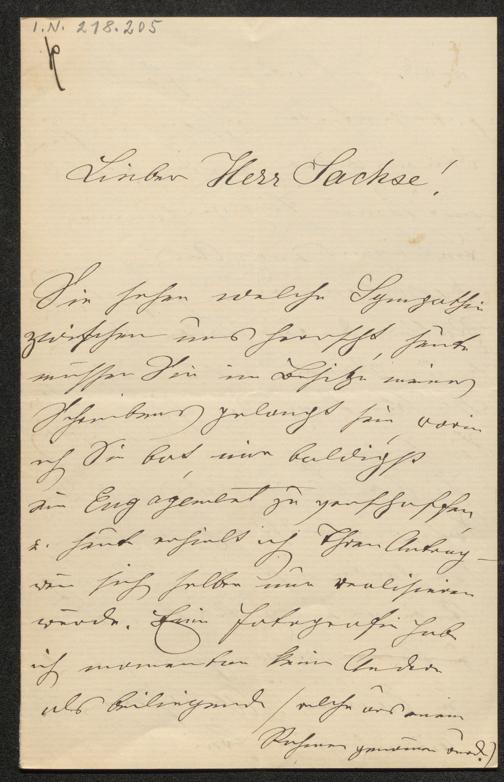 I.N. 218.205
Lieber Herr Sachse!
Sie sehen welche Sympathie
zwischen uns herrscht, heute
müssen Sie im Besitze meines
Schreibens gelangt sein, worin
ich Sie bat, mir baldigst
ein Engagement zu verschaffen
u. heute erhielt ich Ihren Antrag –
wenn sich selber nur realisieren
würde. Eine Fotografie habe
ich momentan keine Andere
als beiliegende (welche aus einem
Rahmen genommen wurde.)